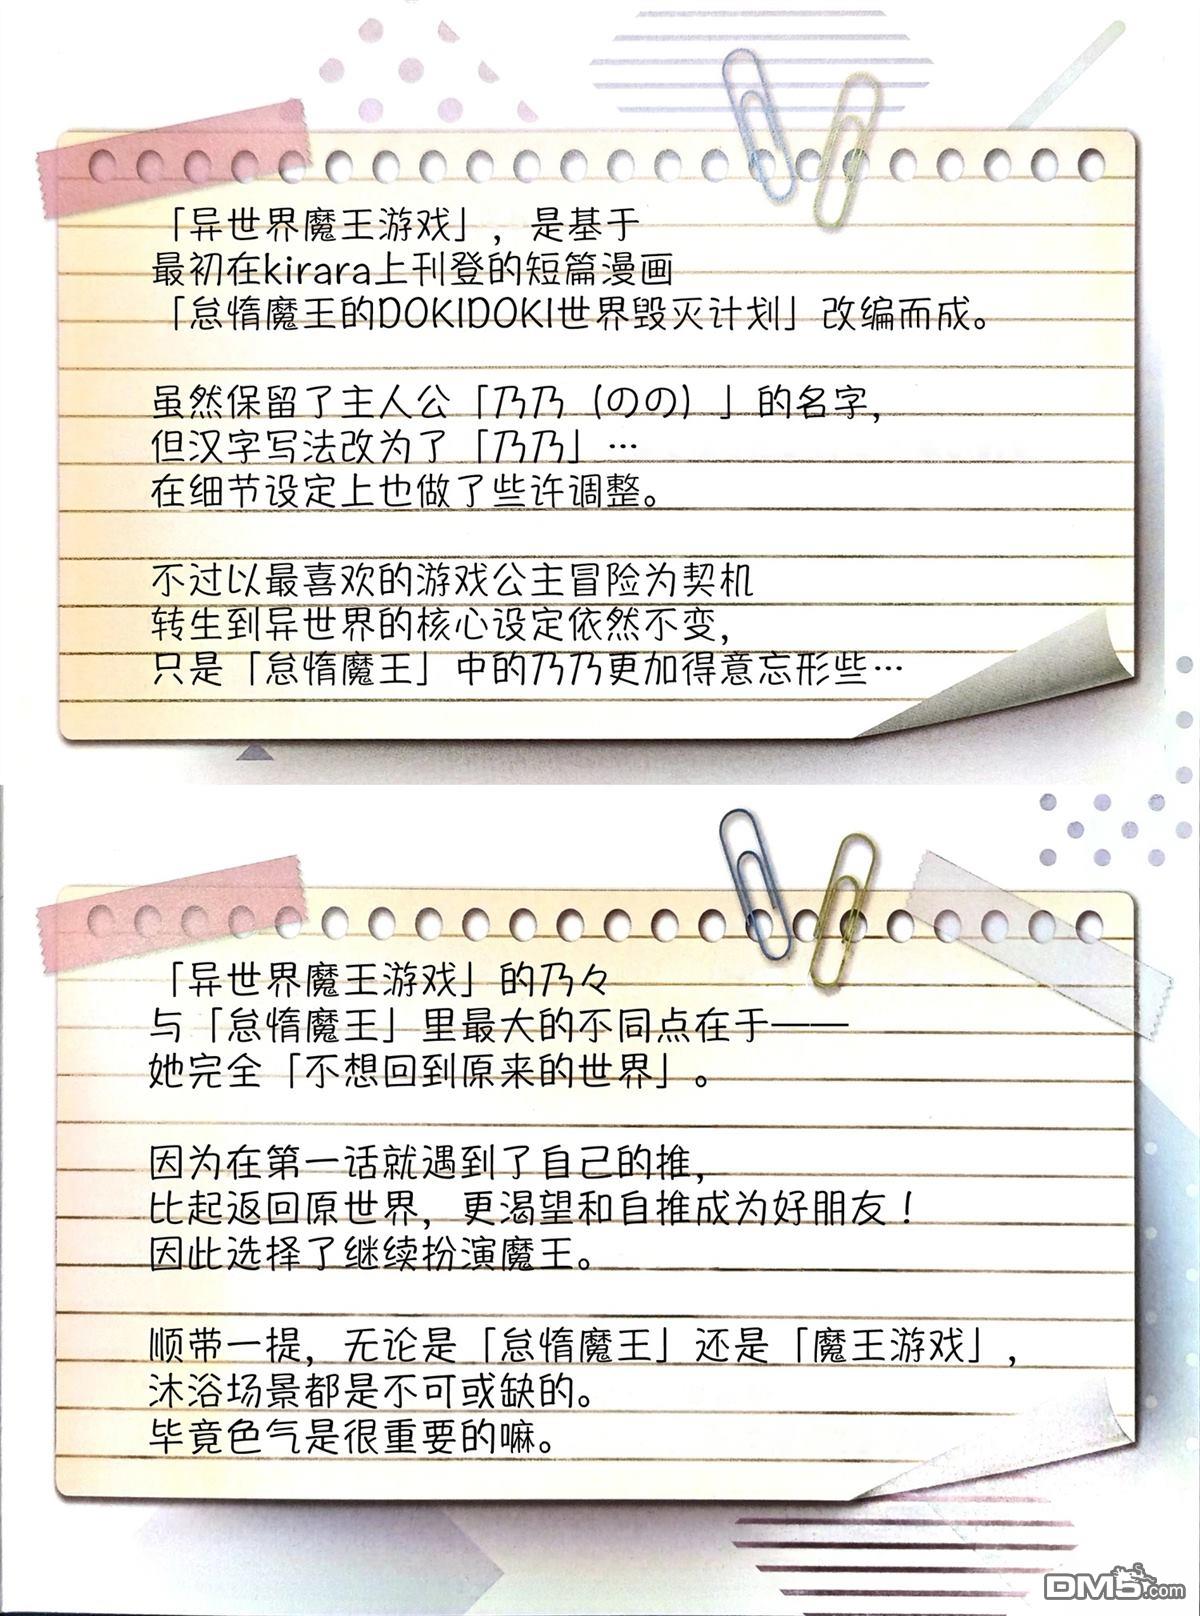 「异世界魔王游戏」，是基于
最初在kirara上刊登的短篇漫画
「怠惰魔王的DOKIDOKI世界毁灭计划」改编而成。
虽然保留了主人公「乃乃（のの）」的名字，
但汉字写法改为了「乃乃」…
在细节设定上也做了些许调整。
不过以最喜欢的游戏公主冒险为契机
转生到异世界的核心设定依然不变，
只是「怠惰魔王」中的乃乃更加得意忘形些…
「异世界魔王游戏」的乃々
与「怠惰魔王」里最大的不同点在于——
她完全「不想回到原来的世界」。
因为在第一话就遇到了自己的推，
比起返回原世界，更渴望和自推成为好朋友！
因此选择了继续扮演魔王。
顺带一提，无论是「怠惰魔王」还是「魔王游戏」，
沐浴场景都是不可或缺的。
毕竟色气是很重要的嘛。
DM5.com